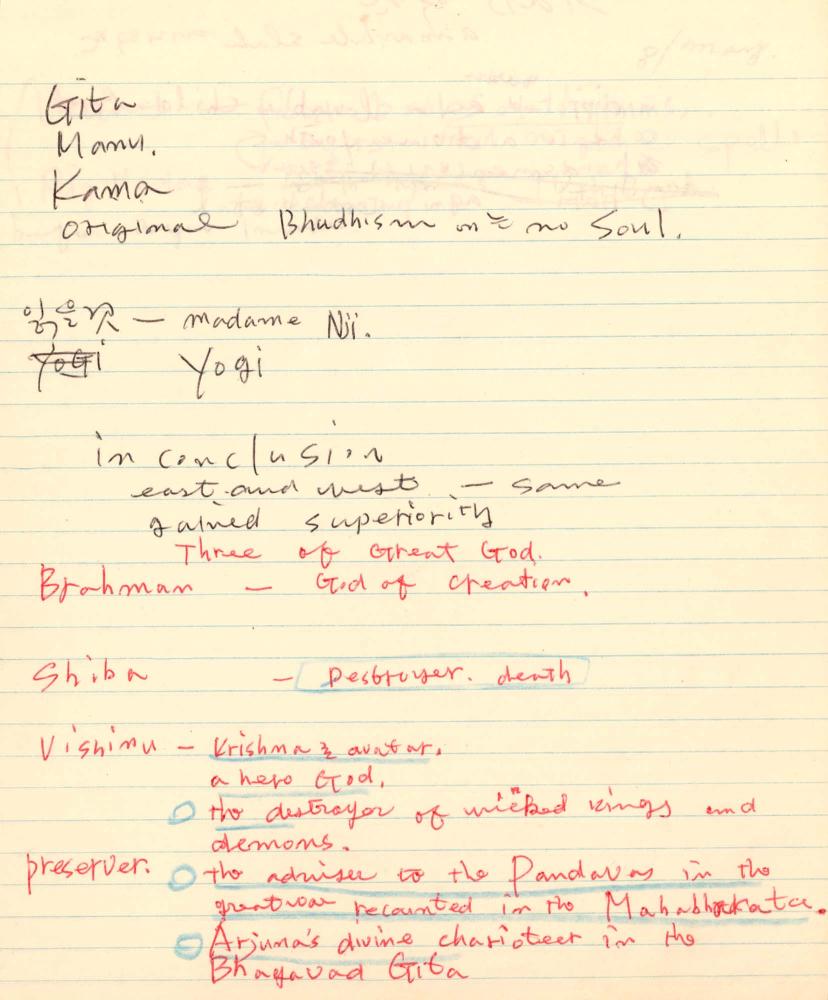 Gita
Manu.
Kama
original Bhudhism 에는 no Soul.
읽을것 — madame Nii.
Yogi Yogi
in conclusion
east and west — same
gained superiority
Three of Great God.
Brahman — God of creation.
Shiba — Destroyer. death
Vishinu — Krishna로 avatar,
a hero God,
the destroyer of wicked kings and
demons.
preserver. the adviser to the Pandavas in the
great war recounted in the Mahabharata.
Arjuna's divine charioteer in the
Bhagavad Gita